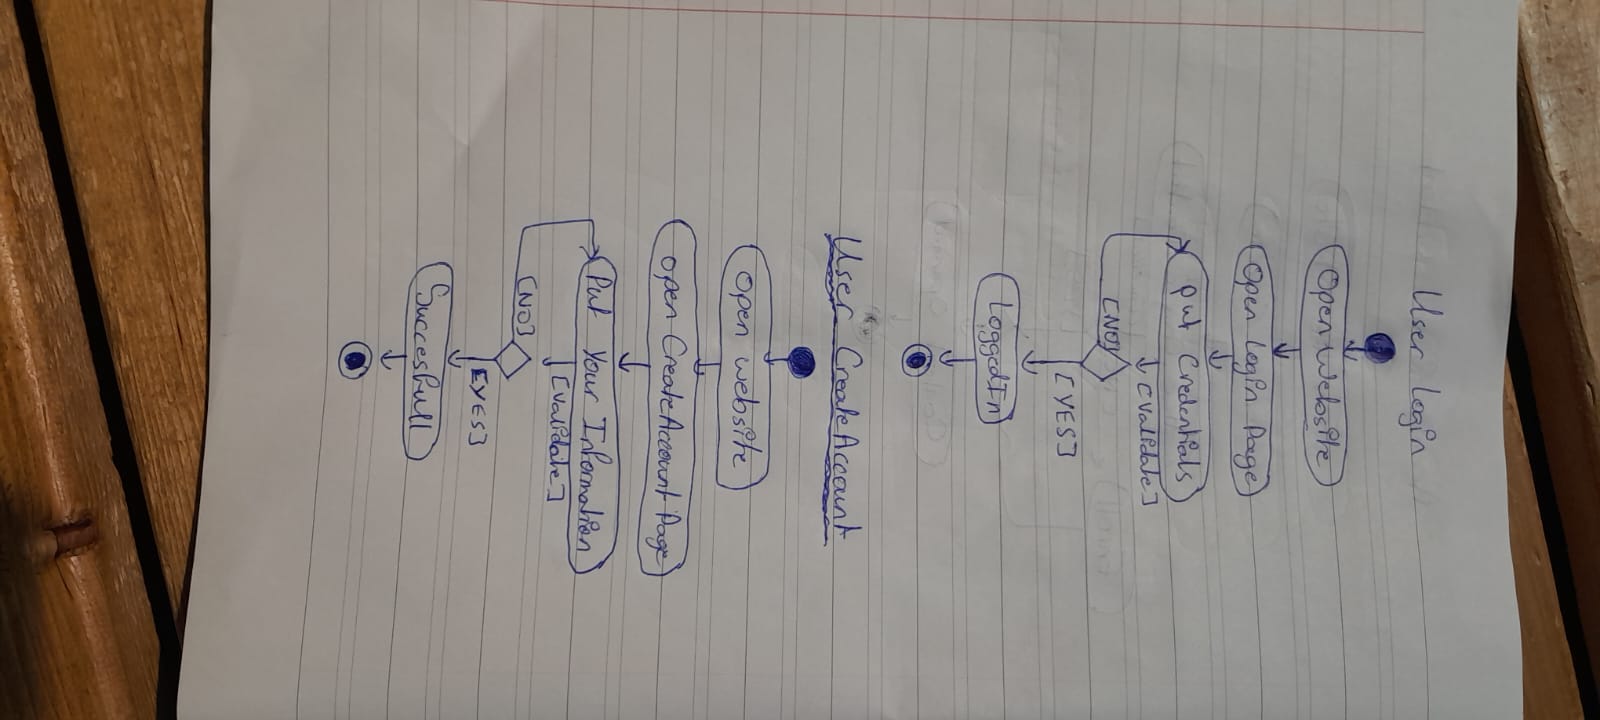 User Login
Open Website
Open Login Page
Put Credentials
[Validate]
[NO]
[YES]
LoggedIn
User CreateAccount
Open website
open CreateAccount Page
Put Your Information
[Validate]
[NO]
[YES]
Succesfull